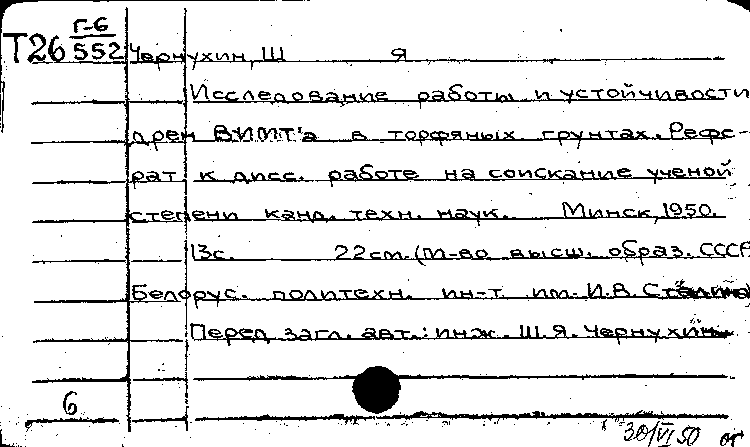 Г-6
Т26 552 Чернухин, Ш Я
Исследование работы и устойчивости
дрен ВИМТ'а в торфяных грунтах. Рефе-
рат к дисс. работе на соискание ученой
степени канд. техн. наук. Минск, 1950.
13с. 22см. (М-во высш. образ. СССР
Белорус. политехн. ин-т им. И.В. Сталина)
Перед загл. авт.: инж. Ш.Я. Чернухин
6
30/VI 50